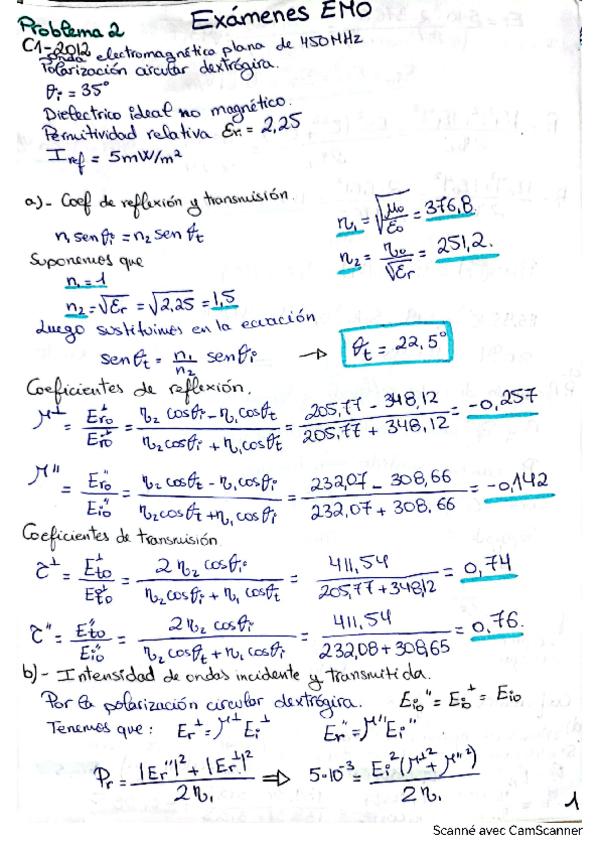 Problema 2
Exámenes EMO
C1-2012
Onda electromagnética plana de 450MHz
Polarización circular dextrógira.
θi = 35°
Dielectrico ideal no magnético.
Permitividad relativa Er = 2,25
Iref = 5mW/m²
a)- Coef de reflexión y transmisión.
n₁ sen θi = n₂ sen θt
η₁ = √(μ₀/ε₀) = 376,8
Suponemos que
η₂ = η₀/√Er = 251,2.
n₁ = 1
n₂ = √Er = √2,25 = 1,5
Luego sustituimos en la ecuación
sen θt = n₁/n₂ sen θi → θt = 22,5°
Coeficientes de reflexión.
r⊥ = Ero⊥/Eio⊥ = (η₂ cos θi - η₁ cos θt)/(η₂ cos θi + η₁ cos θt) = (205,77 - 348,12)/(205,77 + 348,12) = -0,257
r" = Ero"/Eio" = (η₂ cos θt - η₁ cos θi)/(η₂ cos θt + η₁ cos θi) = (232,07 - 308,66)/(232,07 + 308,66) = -0,142
Coeficientes de transmisión
τ⊥ = Eto⊥/Eio⊥ = (2 η₂ cos θi)/(η₂ cos θi + η₁ cos θt) = 411,54/(205,77 + 348,12) = 0,74
τ" = Eto"/Eio" = (2 η₂ cos θi)/(η₂ cos θt + η₁ cos θi) = 411,54/(232,08 + 308,65) = 0,76.
b)- Intensidad de ondas incidente y transmitida.
Por la polarización circular dextrógira. Eio" = Eio⊥ = Eio
Tenemos que: Er⊥ = r⊥ Ei⊥ Er" = r" Ei"
Pr = (|Er"|² + |Er⊥|²)/(2η₁) ⇒ 5·10⁻³ = Ei²(r⊥² + r"²)/(2η₁)
1
Scanné avec CamScanner